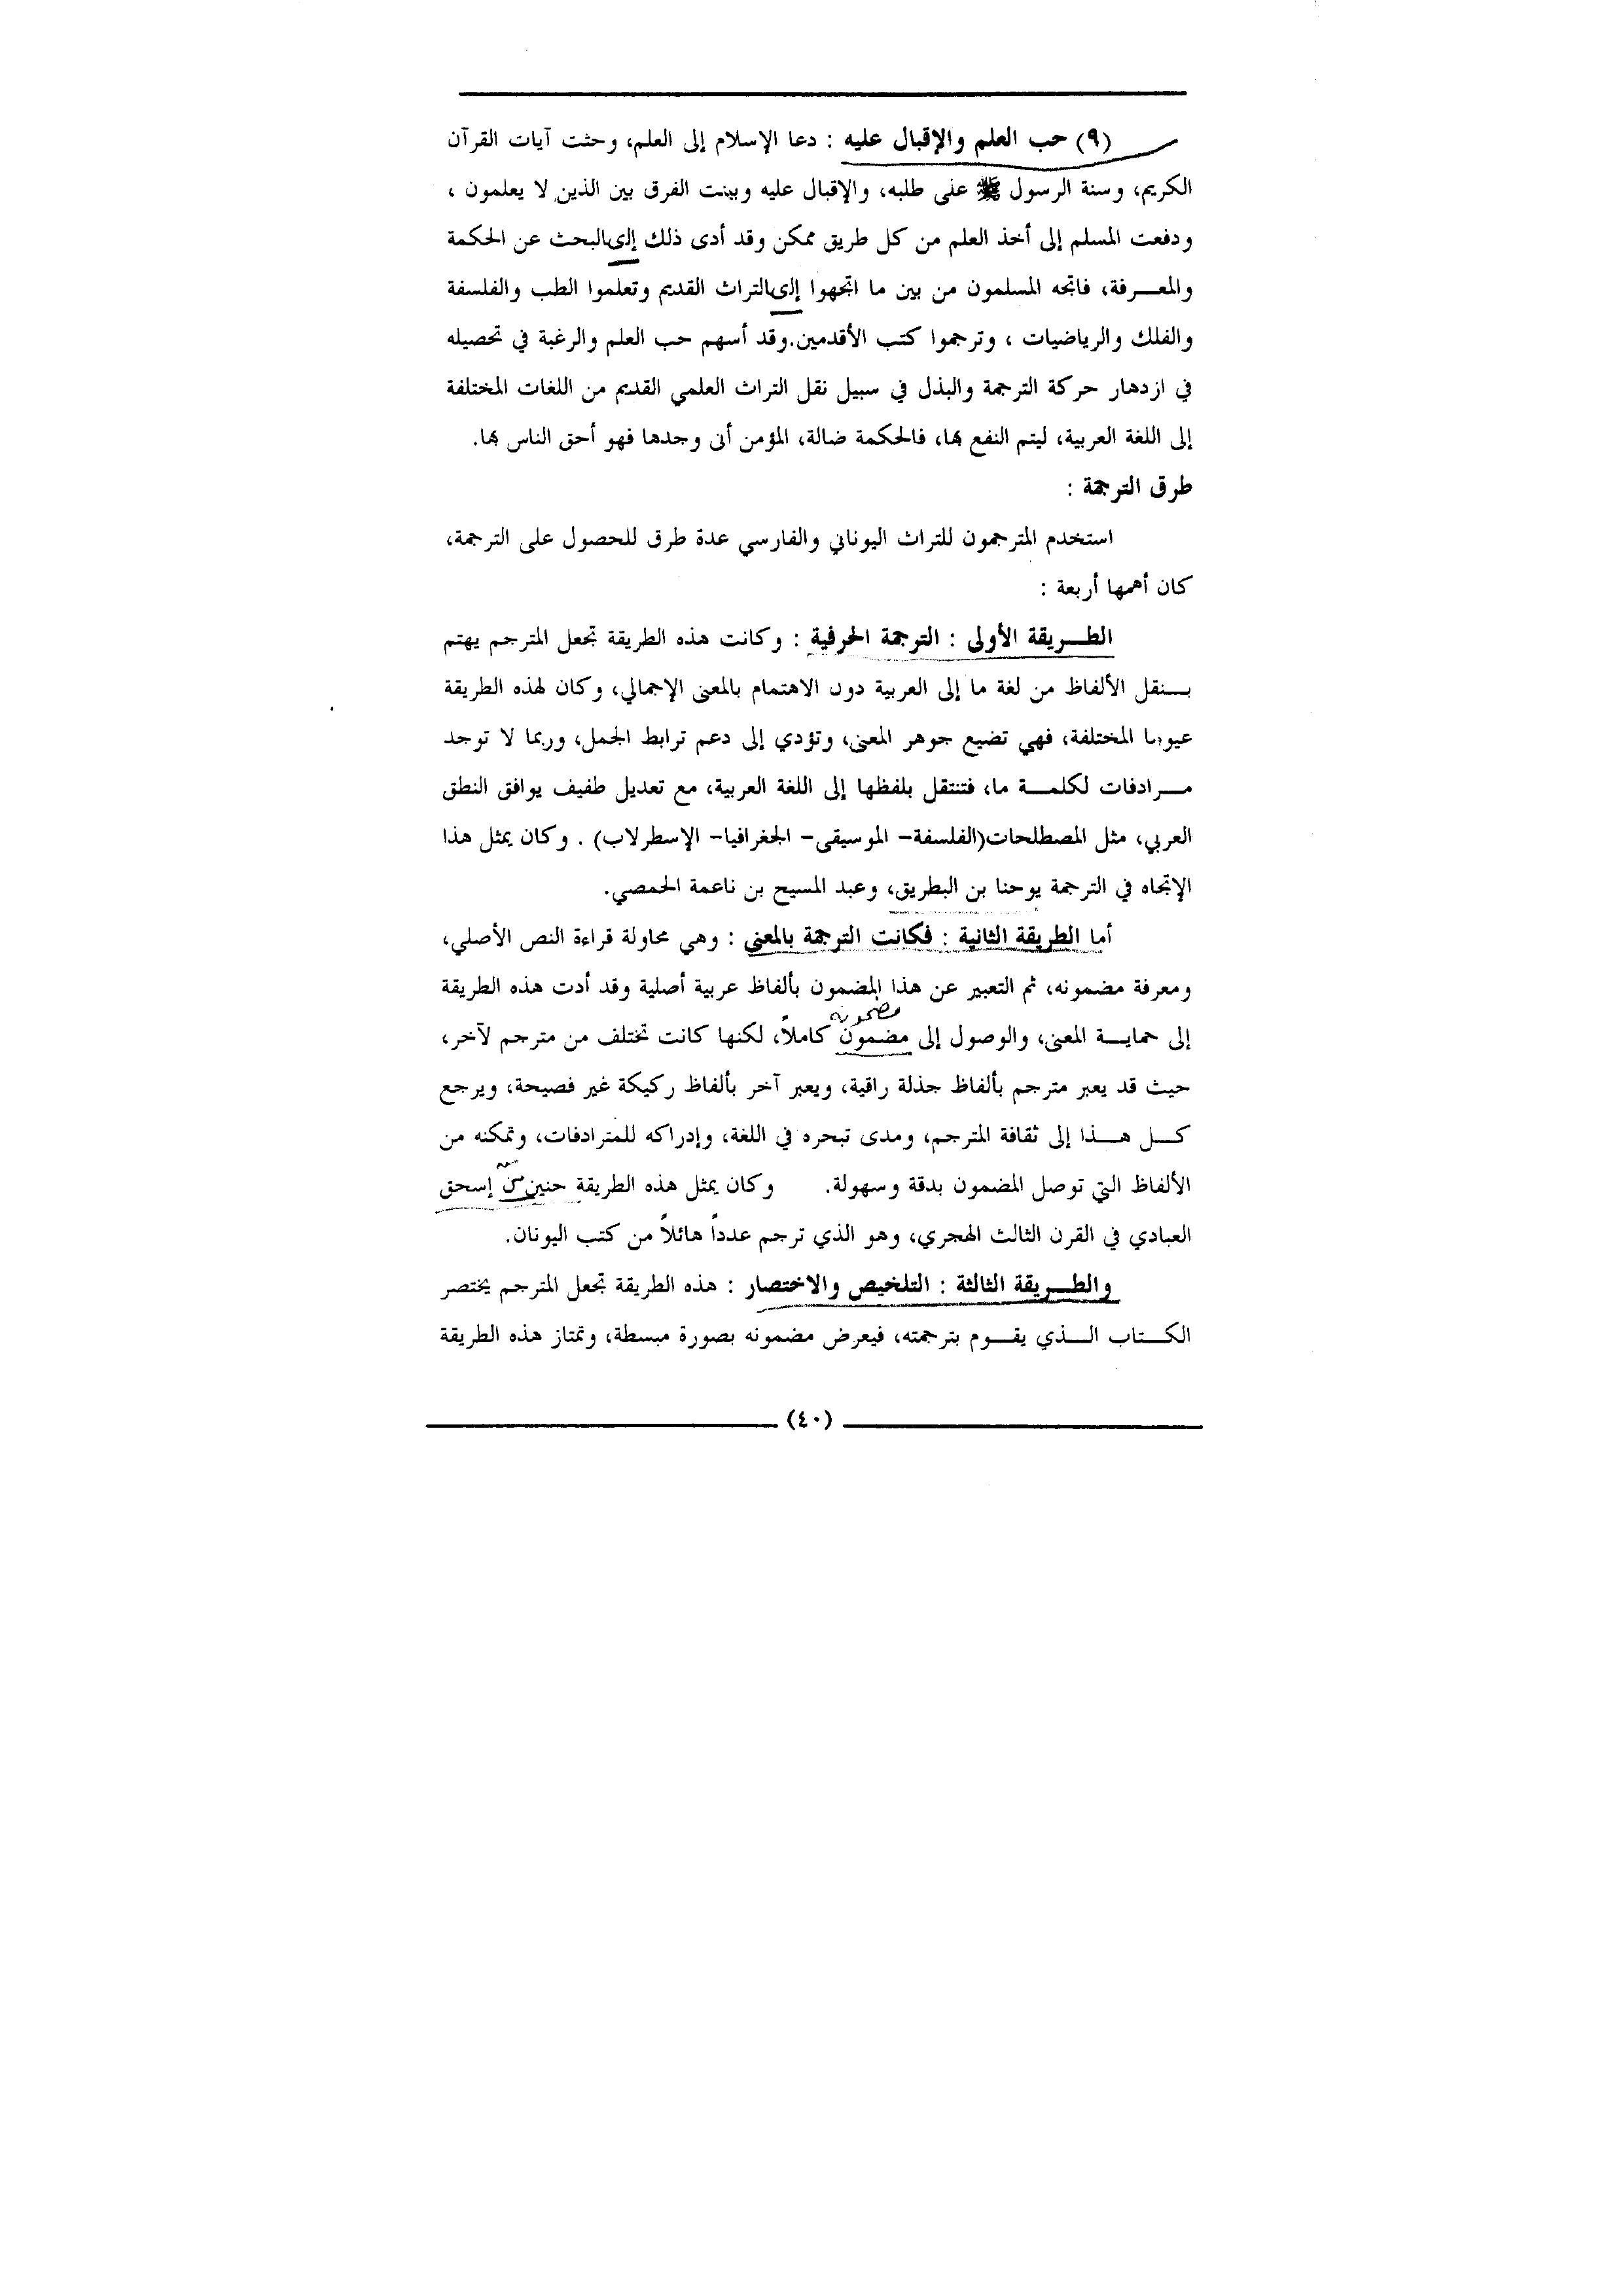 (٩) حب العلم والإقبال عليه : دعا الإسلام إلى العلم، وحثت آيات القرآن
الكريم، وسنة الرسول ﷺ على طلبه، والإقبال عليه وبينت الفرق بين الذين لا يعلمون ،
ودفعت المسلم إلى أخذ العلم من كل طريق ممكن وقد أدى ذلك إلى البحث عن الحكمة
والمعـــرفة، فاتجه المسلمون من بين ما اتجهوا إلى التراث القديم وتعلموا الطب والفلسفة
والفلك والرياضيات ، وترجموا كتب الأقدمين.وقد أسهم حب العلم والرغبة في تحصيله
في ازدهار حركة الترجمة والبذل في سبيل نقل التراث العلمي القديم من اللغات المختلفة
إلى اللغة العربية، ليتم النفع بها، فالحكمة ضالة، المؤمن أنى وجدها فهو أحق الناس بها.
طرق الترجمة :
استخدم المترجمون للتراث اليوناني والفارسي عدة طرق للحصول على الترجمة،
كان أهمها أربعة :
الطـــريقة الأولى : الترجمة الحرفية : وكانت هذه الطريقة تجعل المترجم يهتم
بـــنقل الألفاظ من لغة ما إلى العربية دون الاهتمام بالمعنى الإجمالي، وكان لهذه الطريقة
عيوبها المختلفة، فهي تضيع جوهر المعنى، وتؤدي إلى دعم ترابط الجمل، وربما لا توجد
مـــرادفات لكلمـــة ما، فتنتقل بلفظها إلى اللغة العربية، مع تعديل طفيف يوافق النطق
العربي، مثل المصطلحات(الفلسفة– الموسيقى– الجغرافيا– الإسطرلاب) . وكان يمثل هذا
الإتجاه في الترجمة يوحنا بن البطريق، وعبد المسيح بن ناعمة الحمصي.
أما الطريقة الثانية : فكانت الترجمة بالمعنى : وهي محاولة قراءة النص الأصلي،
ومعرفة مضمونه، ثم التعبير عن هذا المضمون بألفاظ عربية أصلية وقد أدت هذه الطريقة
مضمونه
إلى حمايـــة المعنى، والوصول إلى مضمون كاملاً، لكنها كانت تختلف من مترجم لآخر،
حيث قد يعبر مترجم بألفاظ جذلة راقية، ويعبر آخر بألفاظ ركيكة غير فصيحة، ويرجع
كـــل هـــذا إلى ثقافة المترجم، ومدى تبحره في اللغة، وإدراكه للمترادفات، وتمكنه من
الألفاظ التي توصل المضمون بدقة وسهولة. وكان يمثل هذه الطريقة حنين بن إسحق
العبادي في القرن الثالث الهجري، وهو الذي ترجم عدداً هائلاً من كتب اليونان.
والطـــريقة الثالثة : التلخيص والاختصار : هذه الطريقة تجعل المترجم يختصر
الكـــتاب الـــذي يقـــوم بترجمته، فيعرض مضمونه بصورة مبسطة، وتمتاز هذه الطريقة
(٤٠)